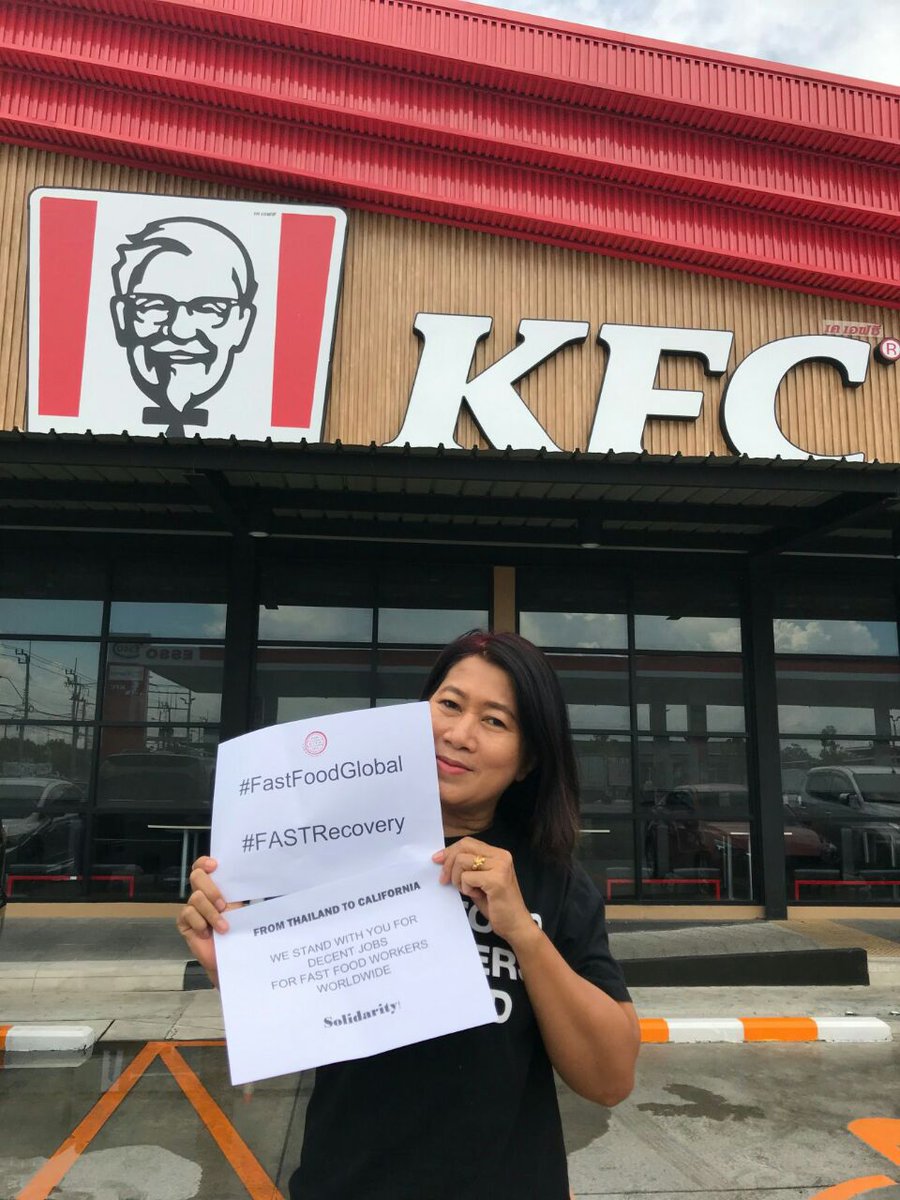 เค เอฟซี
KFC
เค เอฟซี
®
ESSO
#FastFoodGlobal
#FASTRecovery
FROM THAILAND TO CALIFORNIA
WE STAND WITH YOU FOR
DECENT JOBS
FOR FAST FOOD WORKERS
WORLDWIDE
Solidarity!